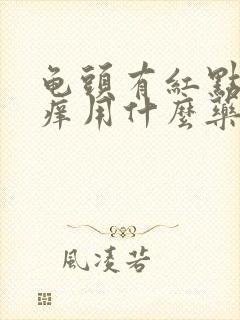 龟頭有紅點
痒用什麼藥
風凌若